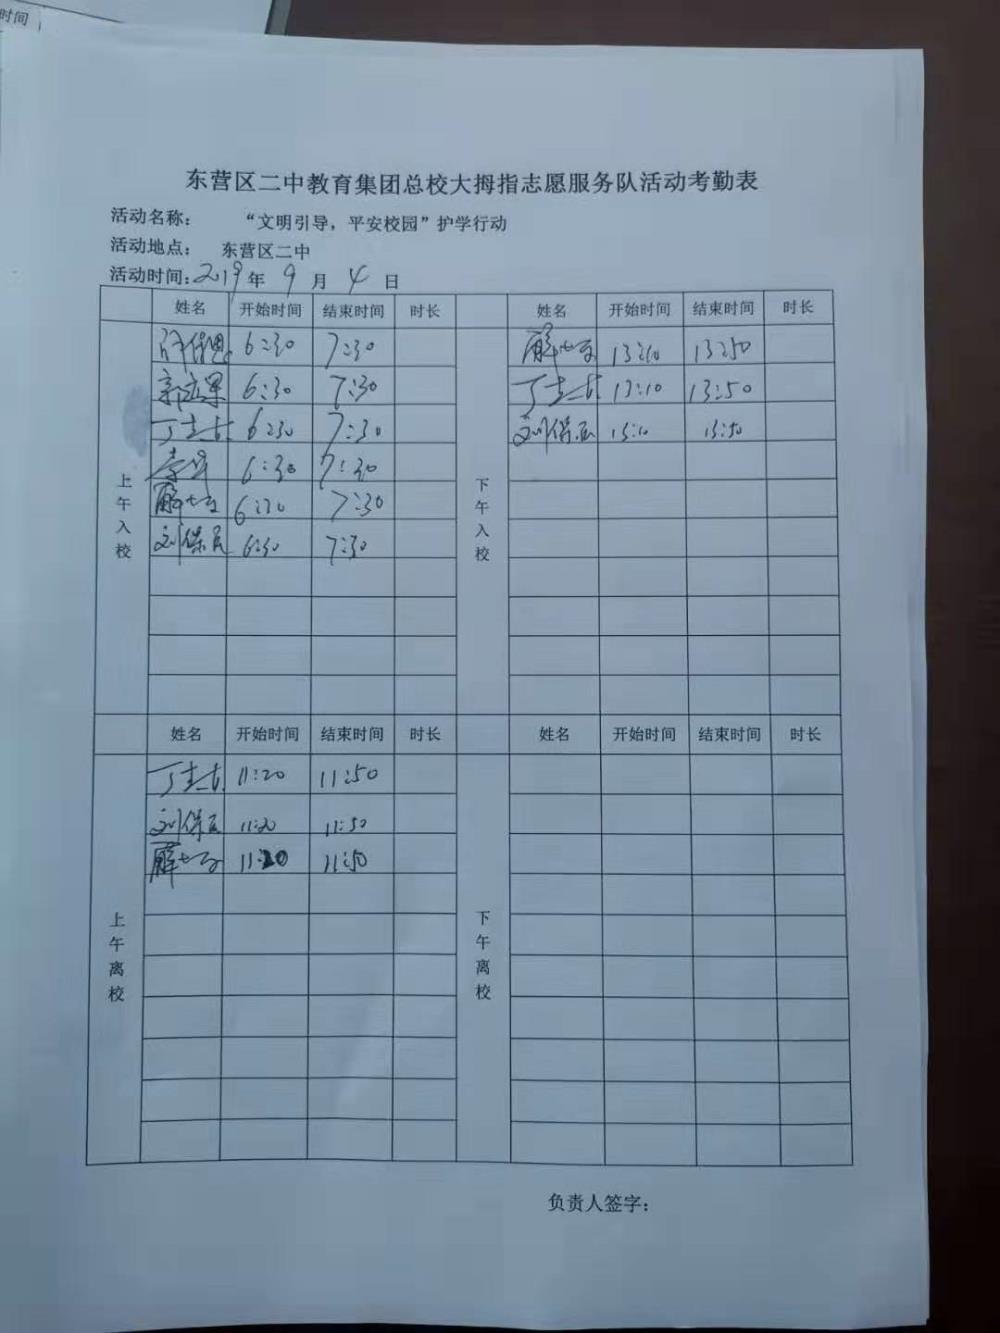 时间
东营区二中教育集团总校大拇指志愿服务队活动考勤表
活动名称： “文明引导，平安校园”护学行动
活动地点： 东营区二中
活动时间：2019年 9 月 4 日
姓名 开始时间 结束时间 时长 姓名 开始时间 结束时间 时长
上午入校
6:30 7:30
6:30 7:30
6:30 7:30
6:30 7:30
6:30 7:30
刘保民 6:30 7:30
下午入校
13:10 13:50
13:10 13:50
刘保民 13:10 13:50
姓名 开始时间 结束时间 时长 姓名 开始时间 结束时间 时长
上午离校
11:20 11:50
刘保民 11:20 11:50
11:20 11:50
下午离校
负责人签字：